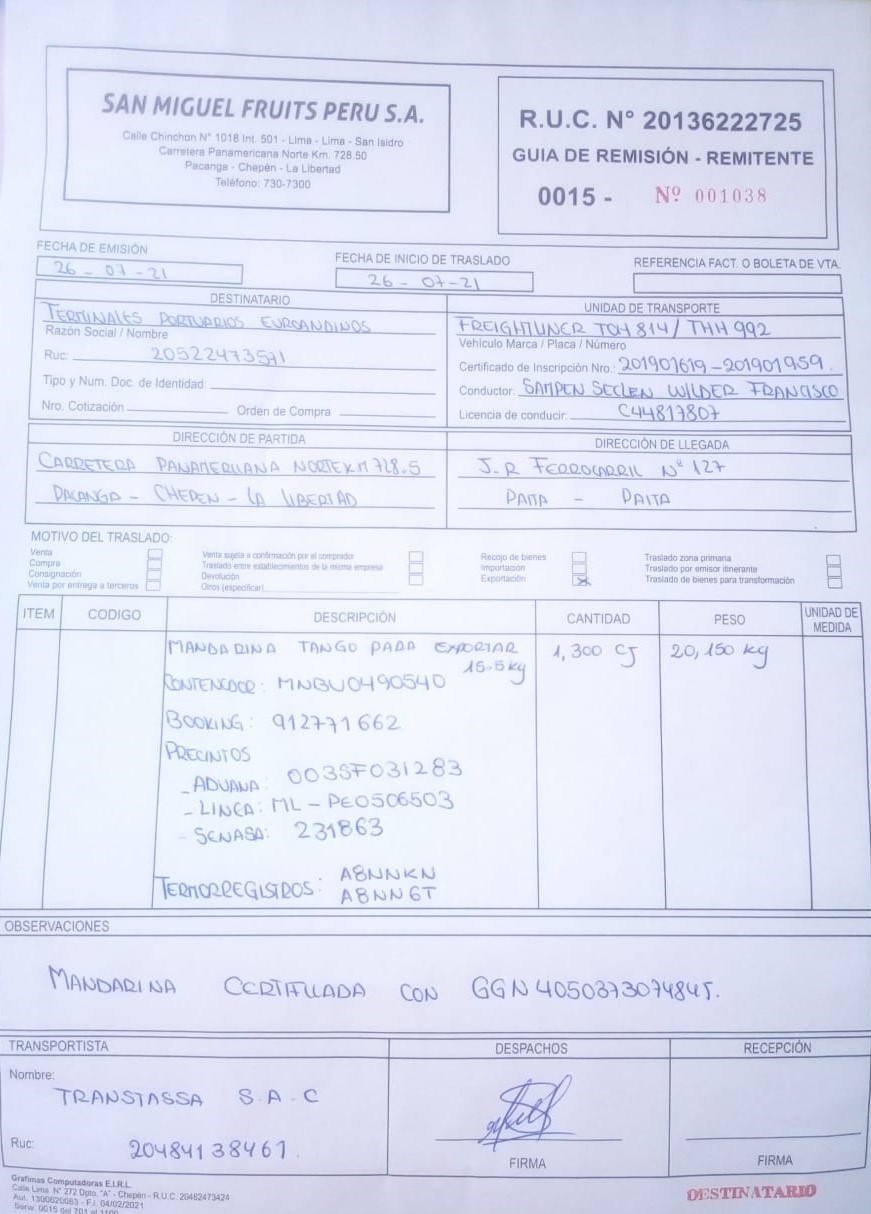 SAN MIGUEL FRUITS PERU S.A.
Calle Chinchon N° 1018 Int. 501 - Lima - Lima - San Isidro
Carretera Panamericana Norte Km. 728.50
Pacanga - Chepén - La Libertad
Teléfono: 730-7300
R.U.C. N° 20136222725
GUIA DE REMISIÓN - REMITENTE
0015 - Nº 001038
FECHA DE EMISIÓN
26 - 07 - 21
FECHA DE INICIO DE TRASLADO
26 - 07 - 21
REFERENCIA FACT. O BOLETA DE VTA.
DESTINATARIO
TERMINALES PORTUARIOS EUROANDINOS
Razón Social / Nombre
Ruc: 20522473571
Tipo y Num. Doc. de Identidad:
Nro. Cotización Orden de Compra
UNIDAD DE TRANSPORTE
FREIGHTLINER TOH 814 / THH 992
Vehículo Marca / Placa / Número
Certificado de Inscripción Nro.: 201901619 - 201901959.
Conductor: SAMPEN SECLEN WILDER FRANCISCO
Licencia de conducir: C44817807
DIRECCIÓN DE PARTIDA
CARRETERA PANAMERICANA NORTE KM 728.5
PACANGA - CHEPEN - LA LIBERTAD
DIRECCIÓN DE LLEGADA
J.R FERROCARRIL Nº 127
PAITA - PAITA
MOTIVO DEL TRASLADO:
Venta
Compra
Consignación
Venta por entrega a terceros
Venta sujeta a confirmación por el comprador
Traslado entre establecimientos de la misma empresa
Devolución
Otros (especificar)
Recojo de bienes
Importación
Exportación X
Traslado zona primaria
Traslado por emisor itinerante
Traslado de bienes para transformación
ITEM CODIGO DESCRIPCIÓN CANTIDAD PESO UNIDAD DE MEDIDA
MANDARINA TANGO PARA EXPORTAR 1,300 CJ 20,150 kg
15.5 kg
CONTENEDOR: MNBU0490540
BOOKING: 912771662
PRECINTOS
- ADUANA: 003SF031283
- LINEA: ML - PE0506503
- SENASA: 231863
TERMORREGISTROS: A8NNKN
A8NN6T
OBSERVACIONES
MANDARINA CERTIFICADA CON GGN 4050373074845.
TRANSPORTISTA
Nombre:
TRANSTASSA S.A.C
Ruc: 20484138461.
DESPACHOS
FIRMA
RECEPCIÓN
FIRMA
Grafimas Computadoras E.I.R.L.
Calle Lima N° 272 Dpto. "A" - Chepén - R.U.C. 20482473424
Aut. 1300620063 - F.I. 04/02/2021
Serie: 0015 del 701 al 1100
DESTINATARIO